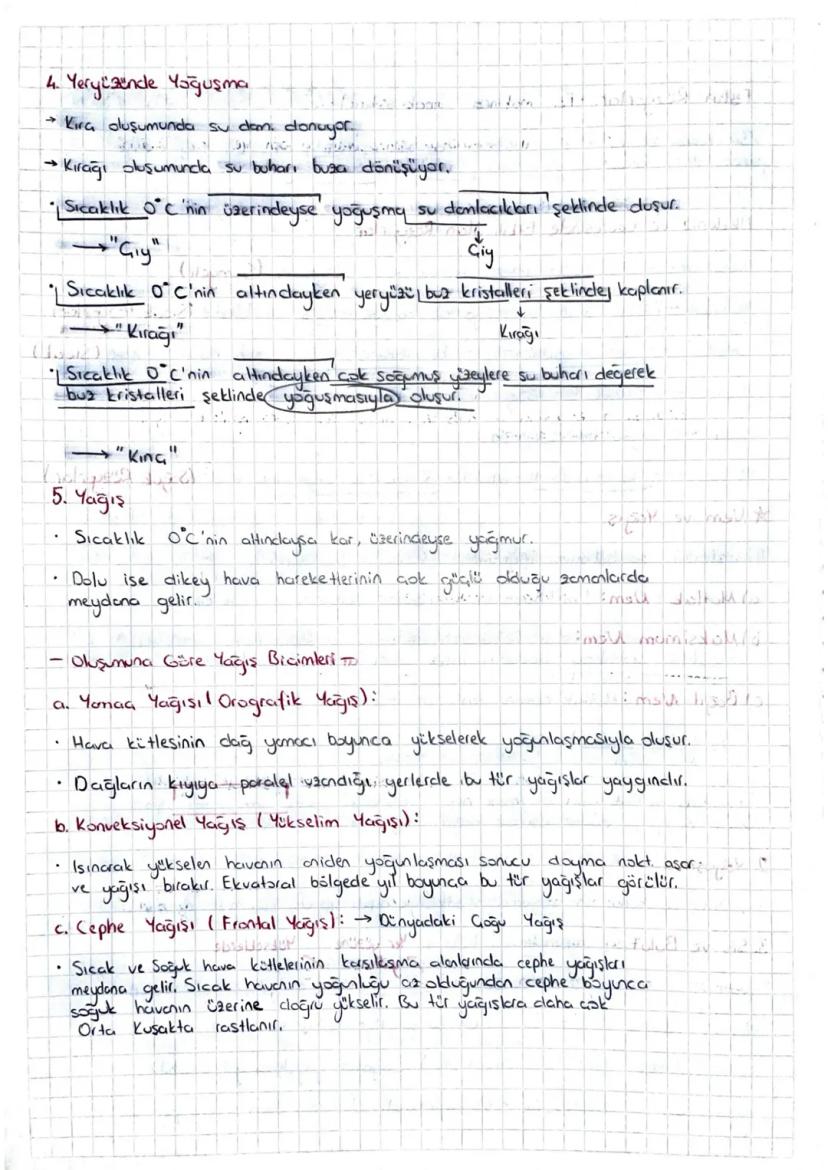 4. Yeryüzünde Yoğuşma
→ Kıra oluşumunda su dam. donuyor.
→ Kırağı oluşumunda su buharı buza dönüşüyor.
• Sıcaklık 0°C'nin üzerindeyse yoğuşma su damlacıkları şeklinde duşur.
→ "Çiy"
Çiy
• Sıcaklık 0°C'nin altındayken yeryüzü buz kristalleri şeklinde kaplanır.
→ "Kırağı"
Kırağı
• Sıcaklık 0°C'nin altındayken çok soğumuş yüzeylere su buharı değerek
buz kristalleri şeklinde yoğuşmasıyla oluşur.
→ "Kırç"
5. Yağış
• Sıcaklık 0°C'nin altındaysa kar, üzerindeyse yağmur.
• Dolu ise dikey hava hareketlerinin çok güçlü olduğu zamanlarda
meydana gelir.
- Oluşumuna Göre Yağış Biçimleri -
a. Yamaç Yağışı ( Orografik Yağış):
• Hava kütlesinin dağ yamacı boyunca yükselerek yoğunlaşmasıyla oluşur.
• Dağların kıyıya paralel uzandığı yerlerde bu tür yağışlar yaygındır.
b. Konveksiyonel Yağış ( Yükselim Yağışı):
• Isınarak yükselen havanın aniden yoğunlaşması sonucu doyma nokt. aşar
ve yağışı bırakır. Ekvatoral bölgede yıl boyunca bu tür yağışlar görülür.
c. Cephe Yağışı ( Frontal Yağış): → Dünyadaki Çoğu Yağış
• Sıcak ve Soğuk hava kütlelerinin karşılaşma alanlarında cephe yağışları
meydana gelir. Sıcak havanın yoğunluğu az olduğundan cephe boyunca
soğuk havanın üzerine doğru yükselir. Bu tür yağışlara daha çok
Orta Kuşakta rastlanır.